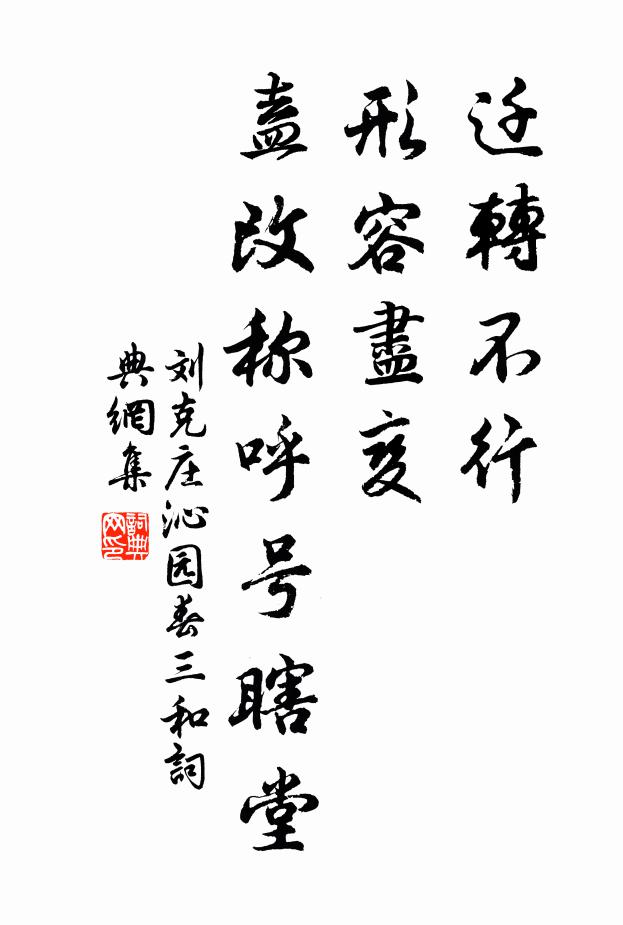 迁轉不行
形容盡变
盍改称呼号瞎堂
刘克庄沁园春三和詞
典網集
詞典
网印